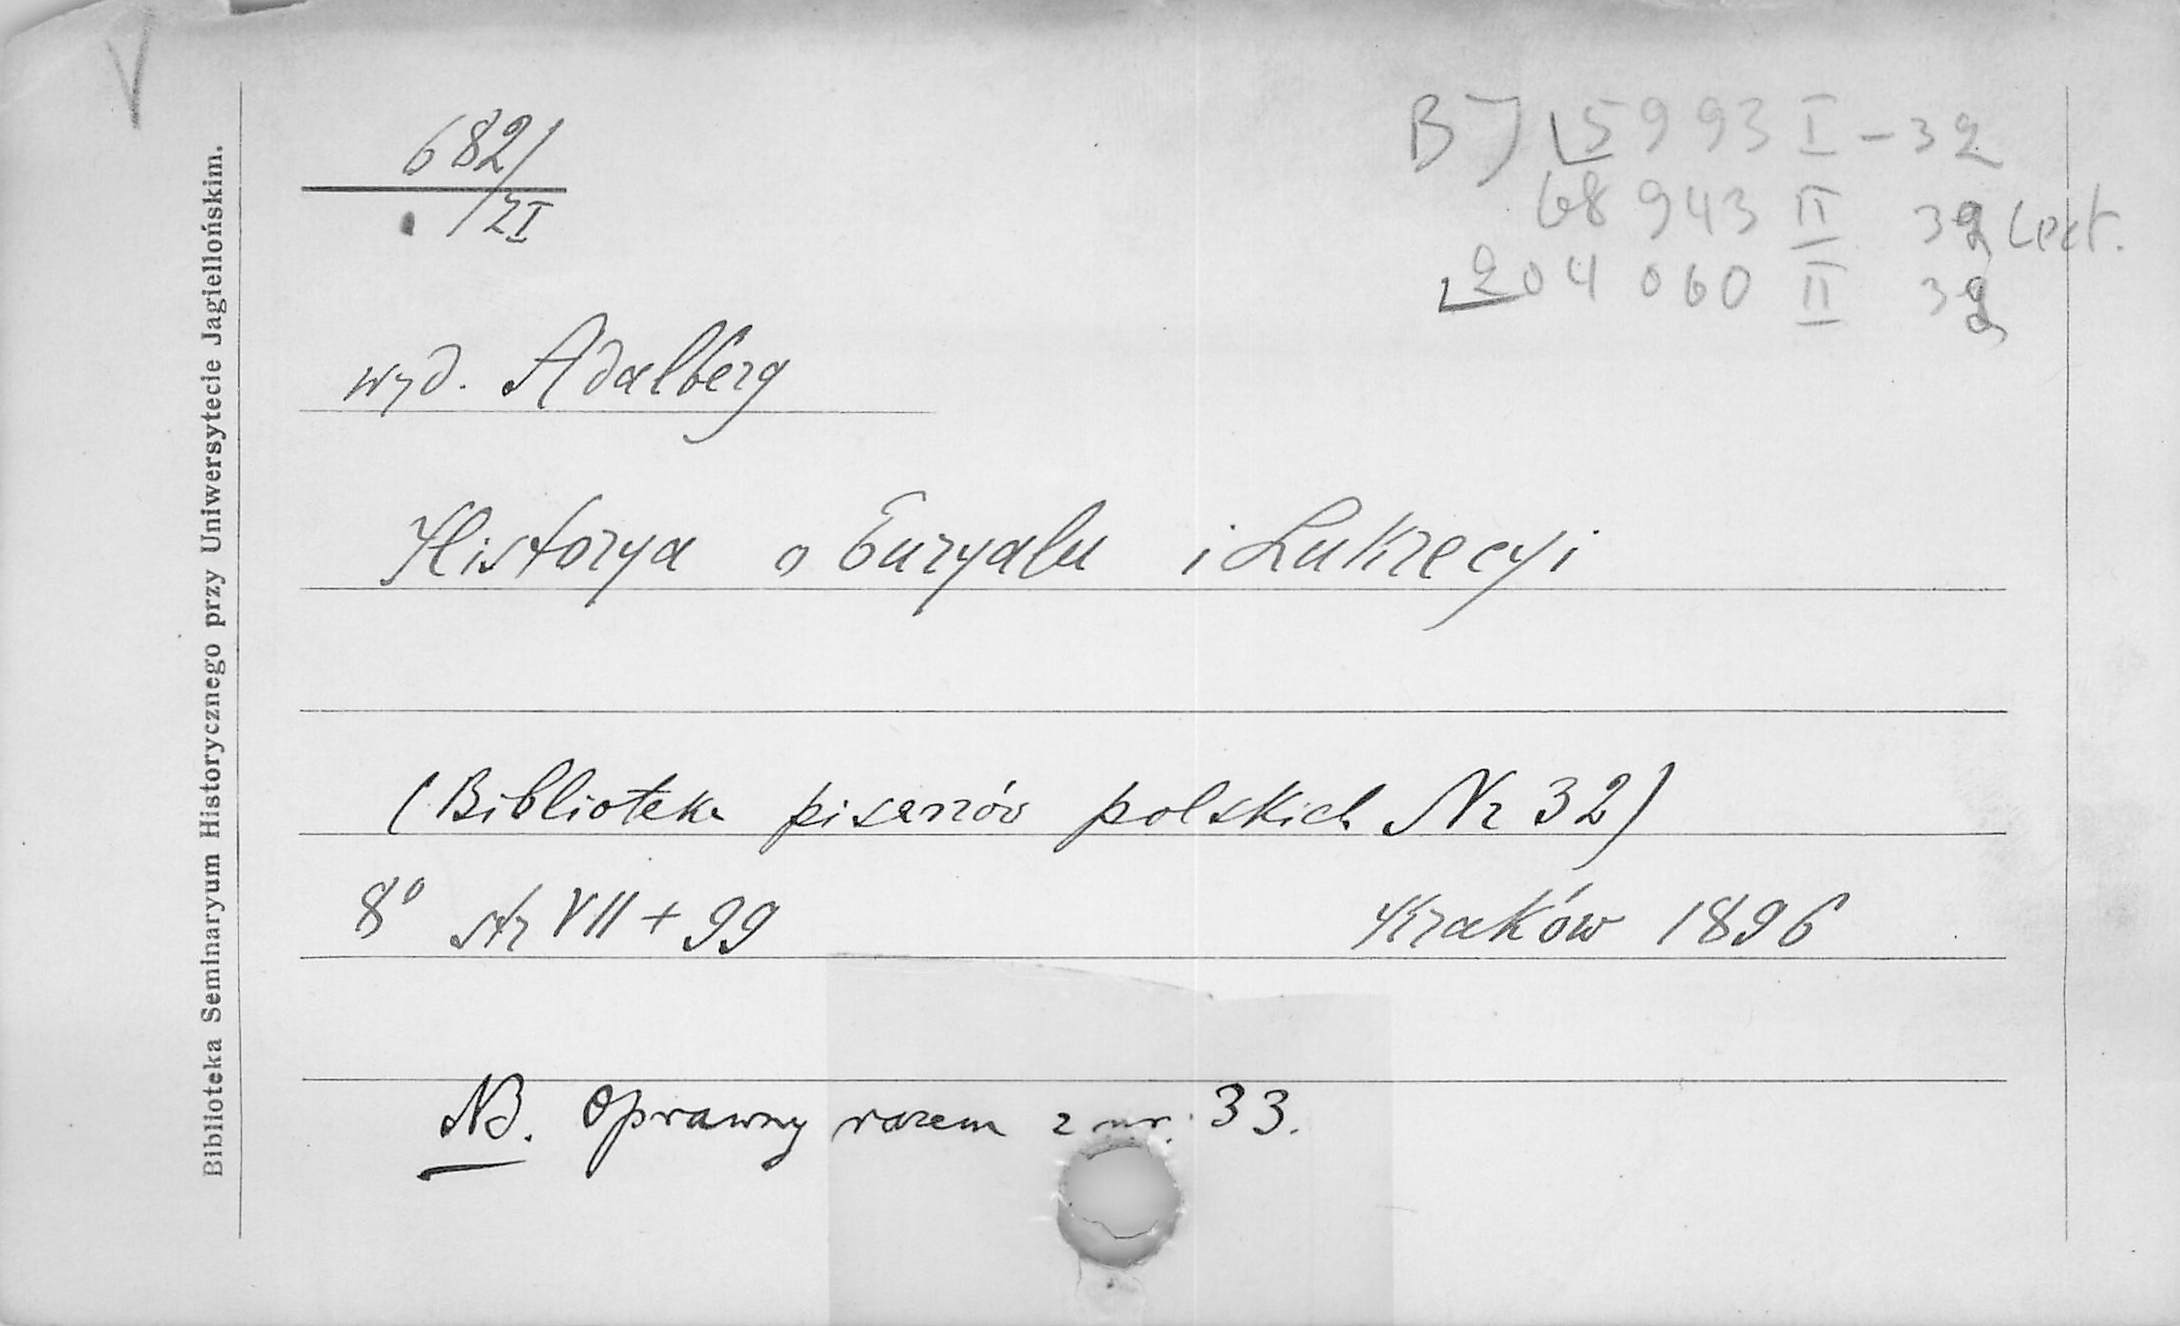 V
682/
/ZI
BJ 15993 I - 32
68943 II 32 Lect.
204060 II 32
wyd. Adalberg
Historya o Euryalu i Lukrecyi
(Biblioteka pisarzów polskich Nr 32)
8° str VII + 99 Kraków 1896
NB. Oprawny razem z nr. 33.
Biblioteka Seminaryum Historycznego przy Uniwersytecie Jagiellońskim.